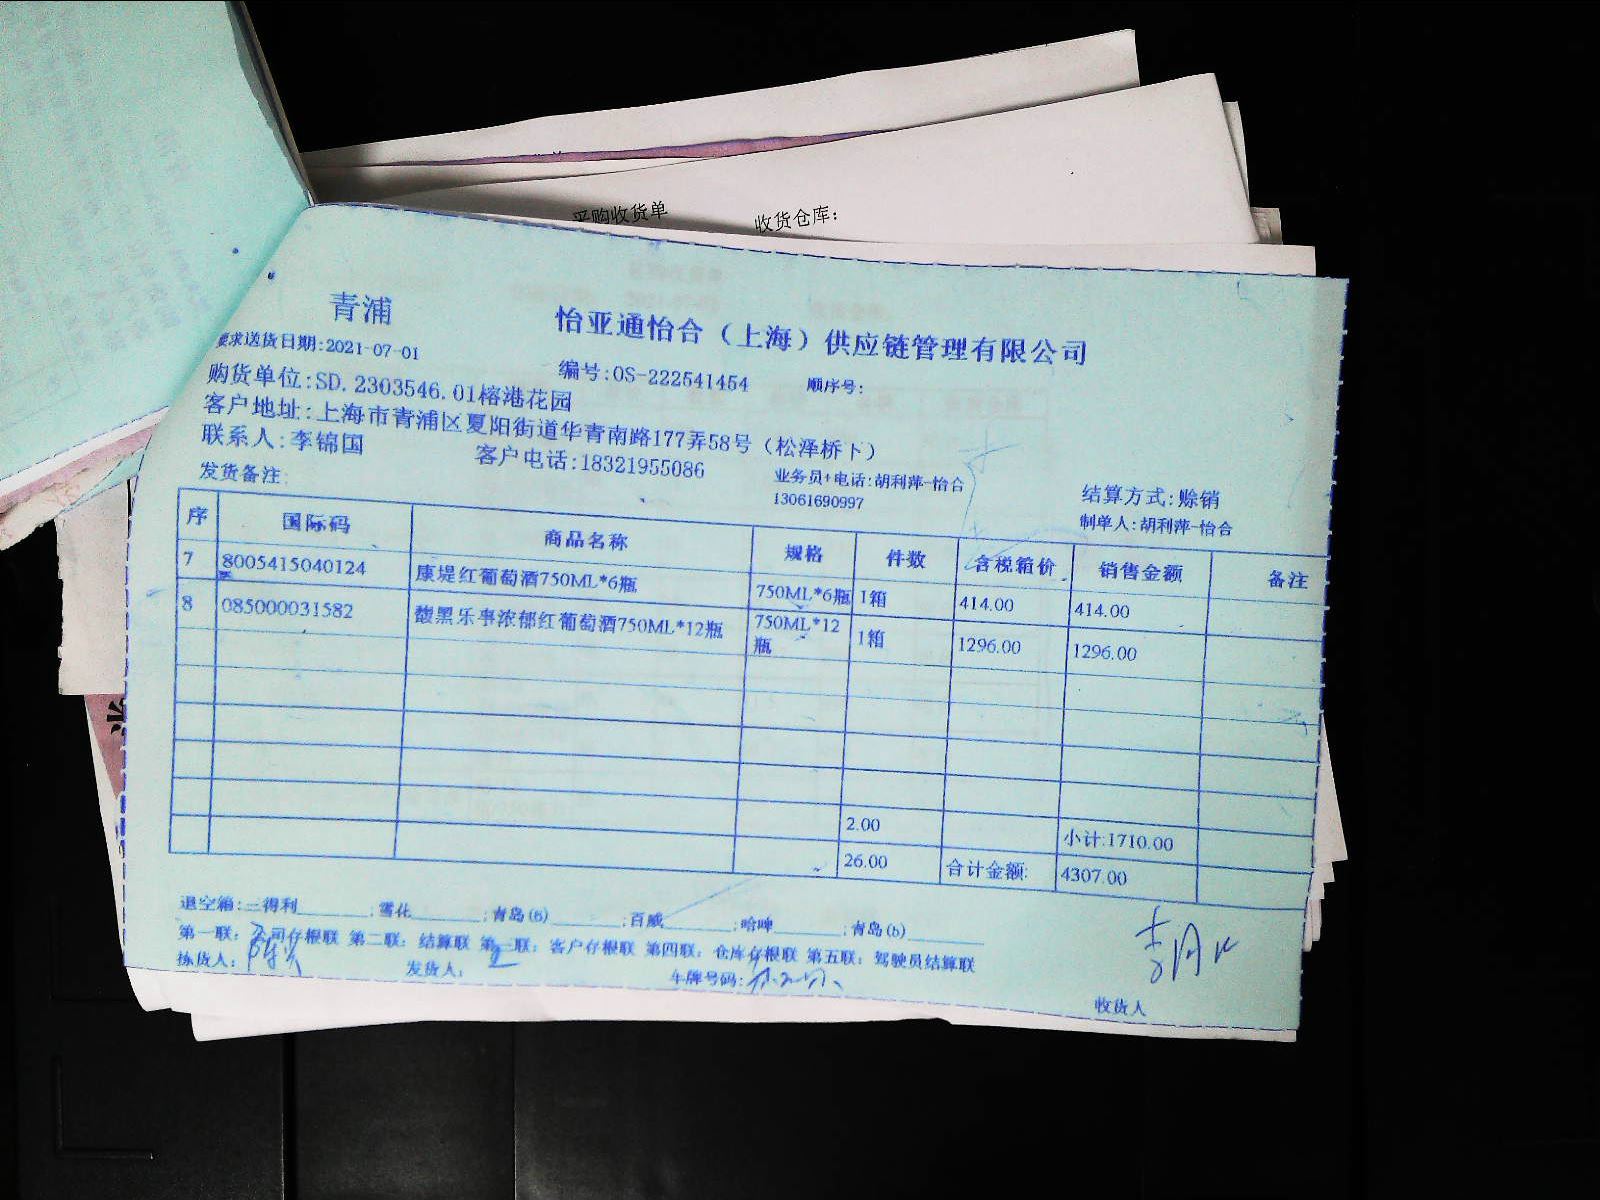 采购收货单 收货仓库:
青浦 怡亚通怡合（上海）供应链管理有限公司
要求送货日期:2021-07-01 编号:OS-222541454 顺序号:
购货单位:SD.2303546.01榕港花园
客户地址:上海市青浦区夏阳街道华青南路177弄58号（松泽桥下）
联系人:李锦国 客户电话:18321955086 业务员+电话:胡利萍-怡合 13061690997 结算方式:赊销
发货备注: 制单人:胡利萍-怡合
序 国际码 商品名称 规格 件数 含税箱价 销售金额 备注
7 8005415040124 康堤红葡萄酒750ML*6瓶 750ML*6瓶 1箱 414.00 414.00
8 085000031582 馥黑乐事浓郁红葡萄酒750ML*12瓶 750ML*12瓶 1箱 1296.00 1296.00
2.00 小计:1710.00
26.00 合计金额: 4307.00
退空箱:三得利______;雪花______;青岛(B)______;百威______;哈啤______;青岛(b)______
第一联：公司存根联 第二联：结算联 第三联：客户存根联 第四联：仓库存根联 第五联：驾驶员结算联
拣货人: 发货人: 车牌号码: 收货人